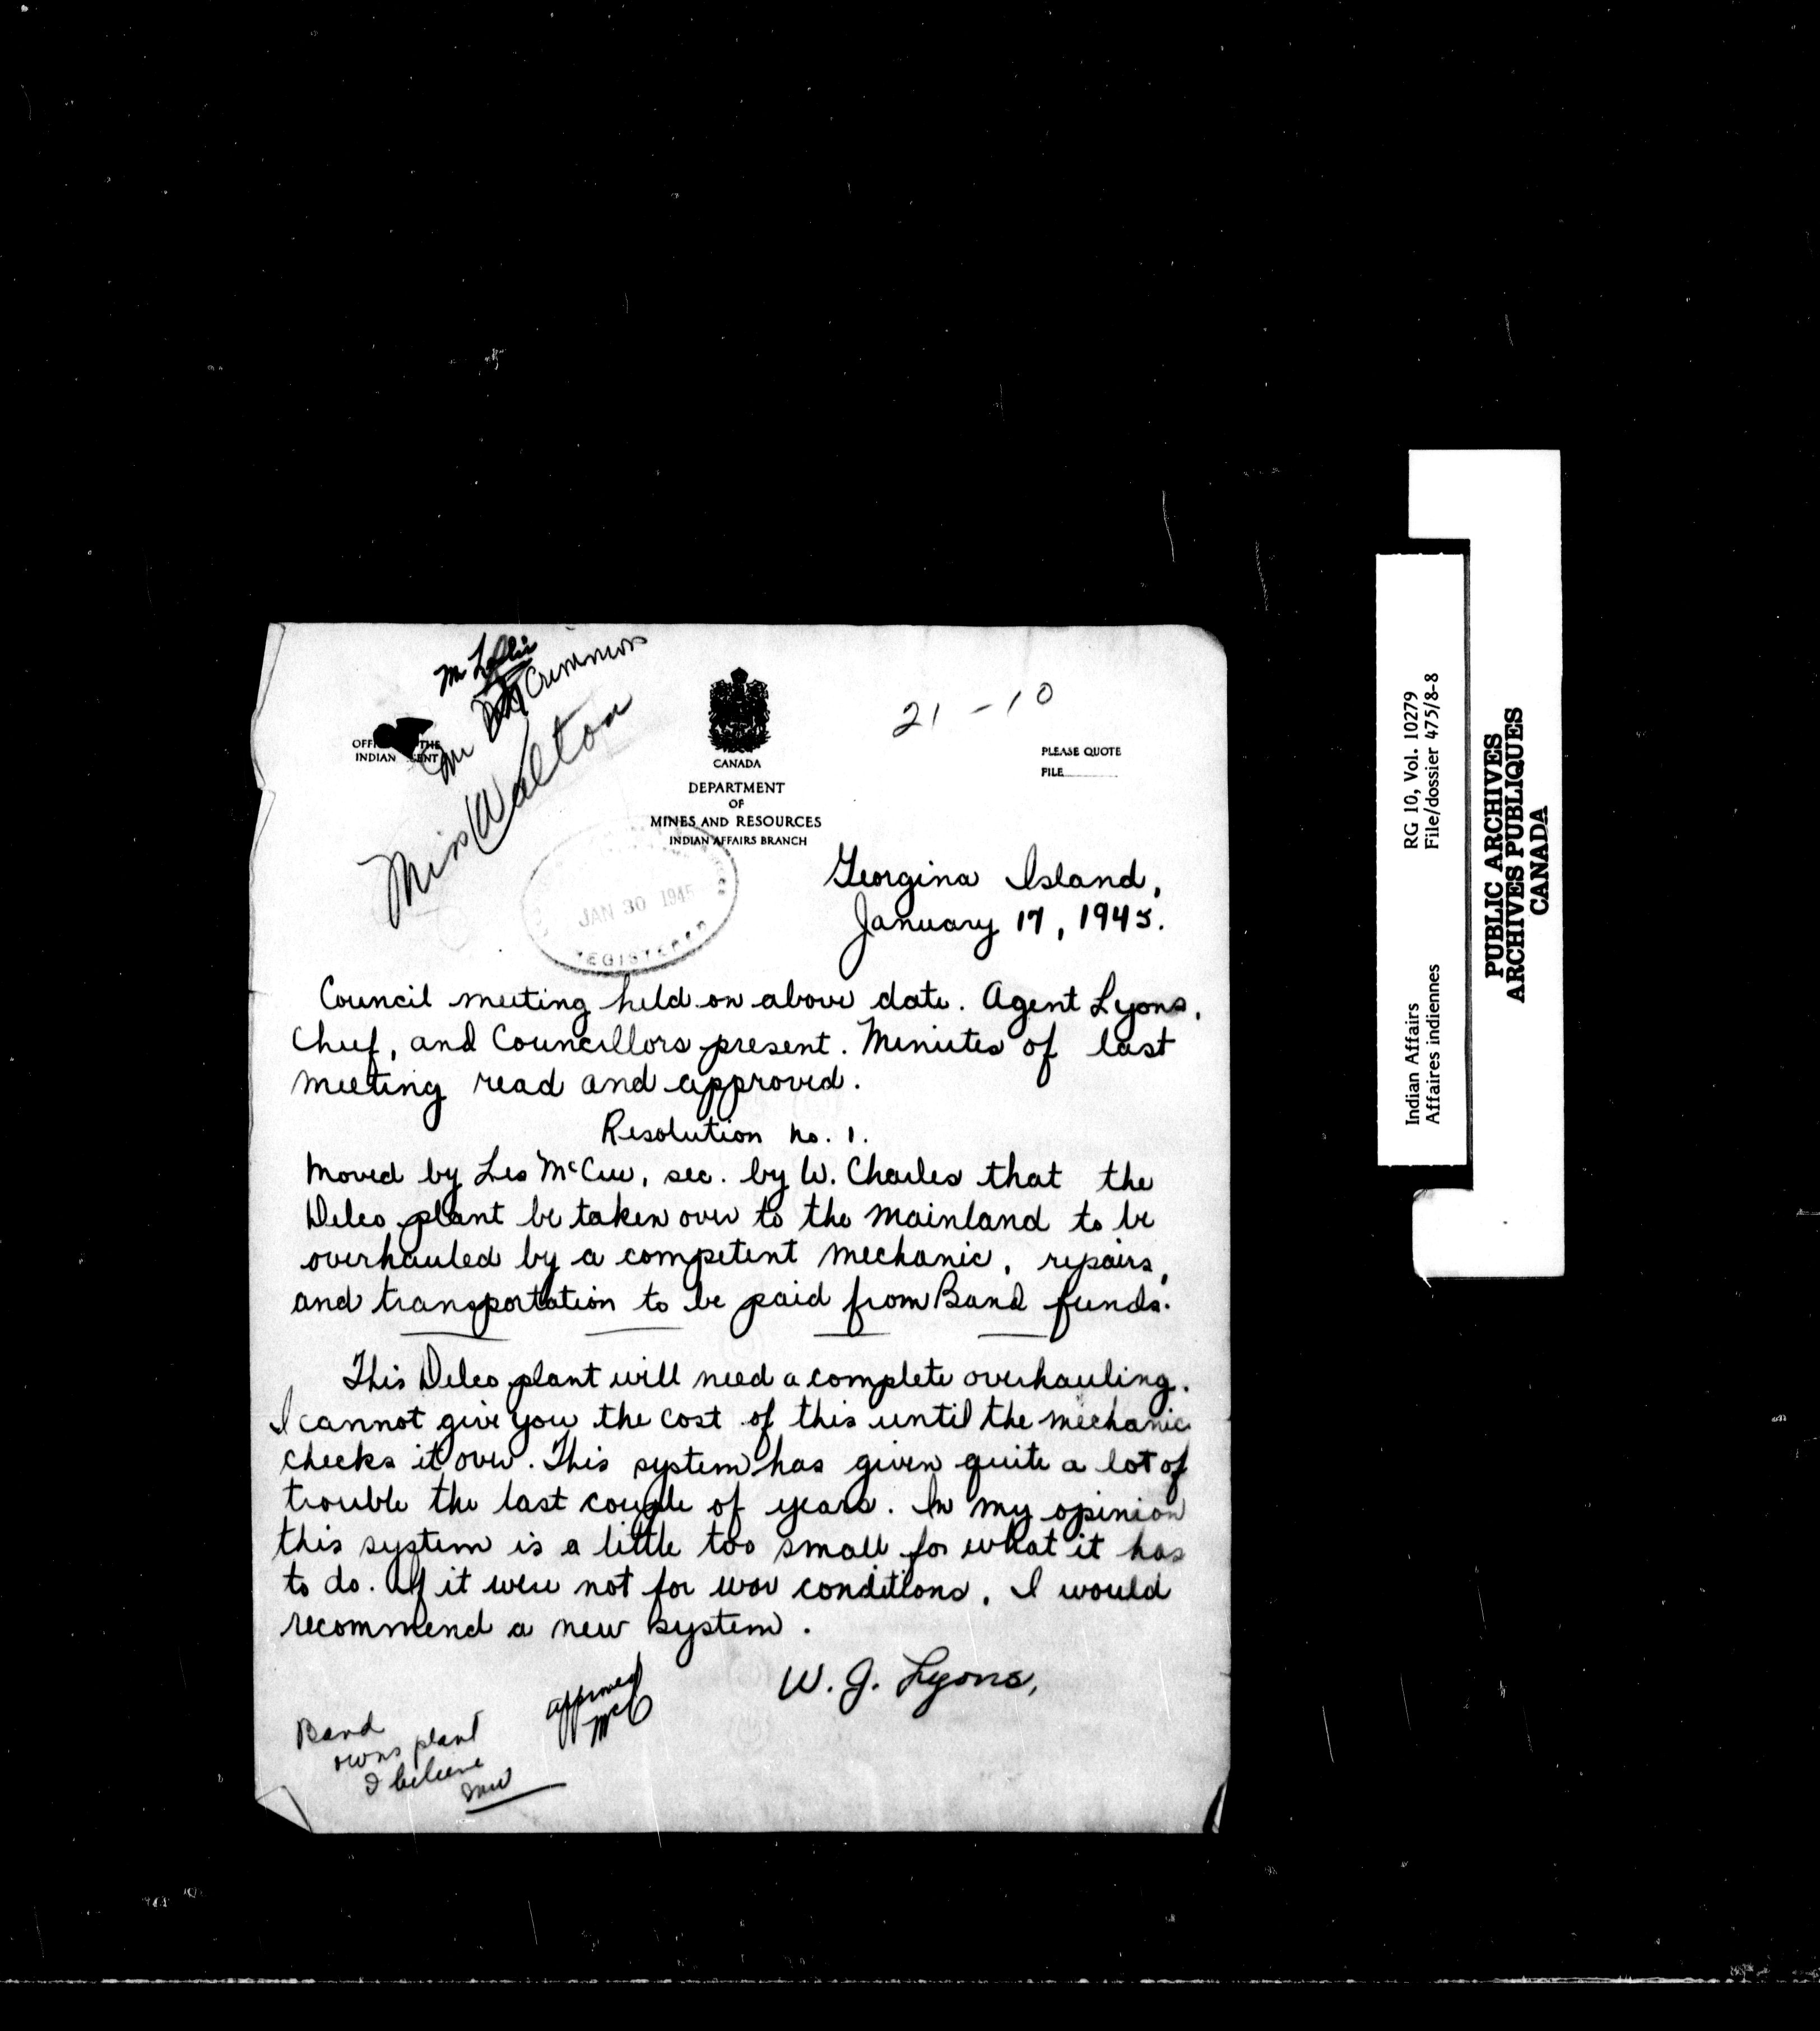 Mr Leslie
Mr McCrimmon
Miss Walton
21-10
OFFI THE
INDIAN ENT
CANADA
DEPARTMENT
OF
MINES AND RESOURCES
INDIAN AFFAIRS BRANCH
PLEASE QUOTE
FILE
JAN 30 1945
REGISTERED
Georgina Island,
January 17, 1945.
Council meeting held on above date. Agent Lyons,
Chief, and Councillors present. Minutes of last
meeting read and approved.
Resolution no. 1.
Moved by Les McCue, sec. by W. Charles that the
Delco plant be taken over to the mainland to be
overhauled by a competent mechanic, repairs,
and transportation to be paid from Band funds.
This Delco plant will need a complete overhauling.
I cannot give you the cost of this until the mechanic
checks it over. This system has given quite a lot of
trouble the last couple of years. In my opinion
this system is a little too small for what it has
to do. If it were not for war conditions, I would
recommend a new system.
W. J. Lyons,
approved
McC
Band
owns plant
I believe
MW
RG 10, Vol. 10279
File/dossier 475/8-8
Indian Affairs
Affaires indiennes
PUBLIC ARCHIVES
ARCHIVES PUBLIQUES
CANADA